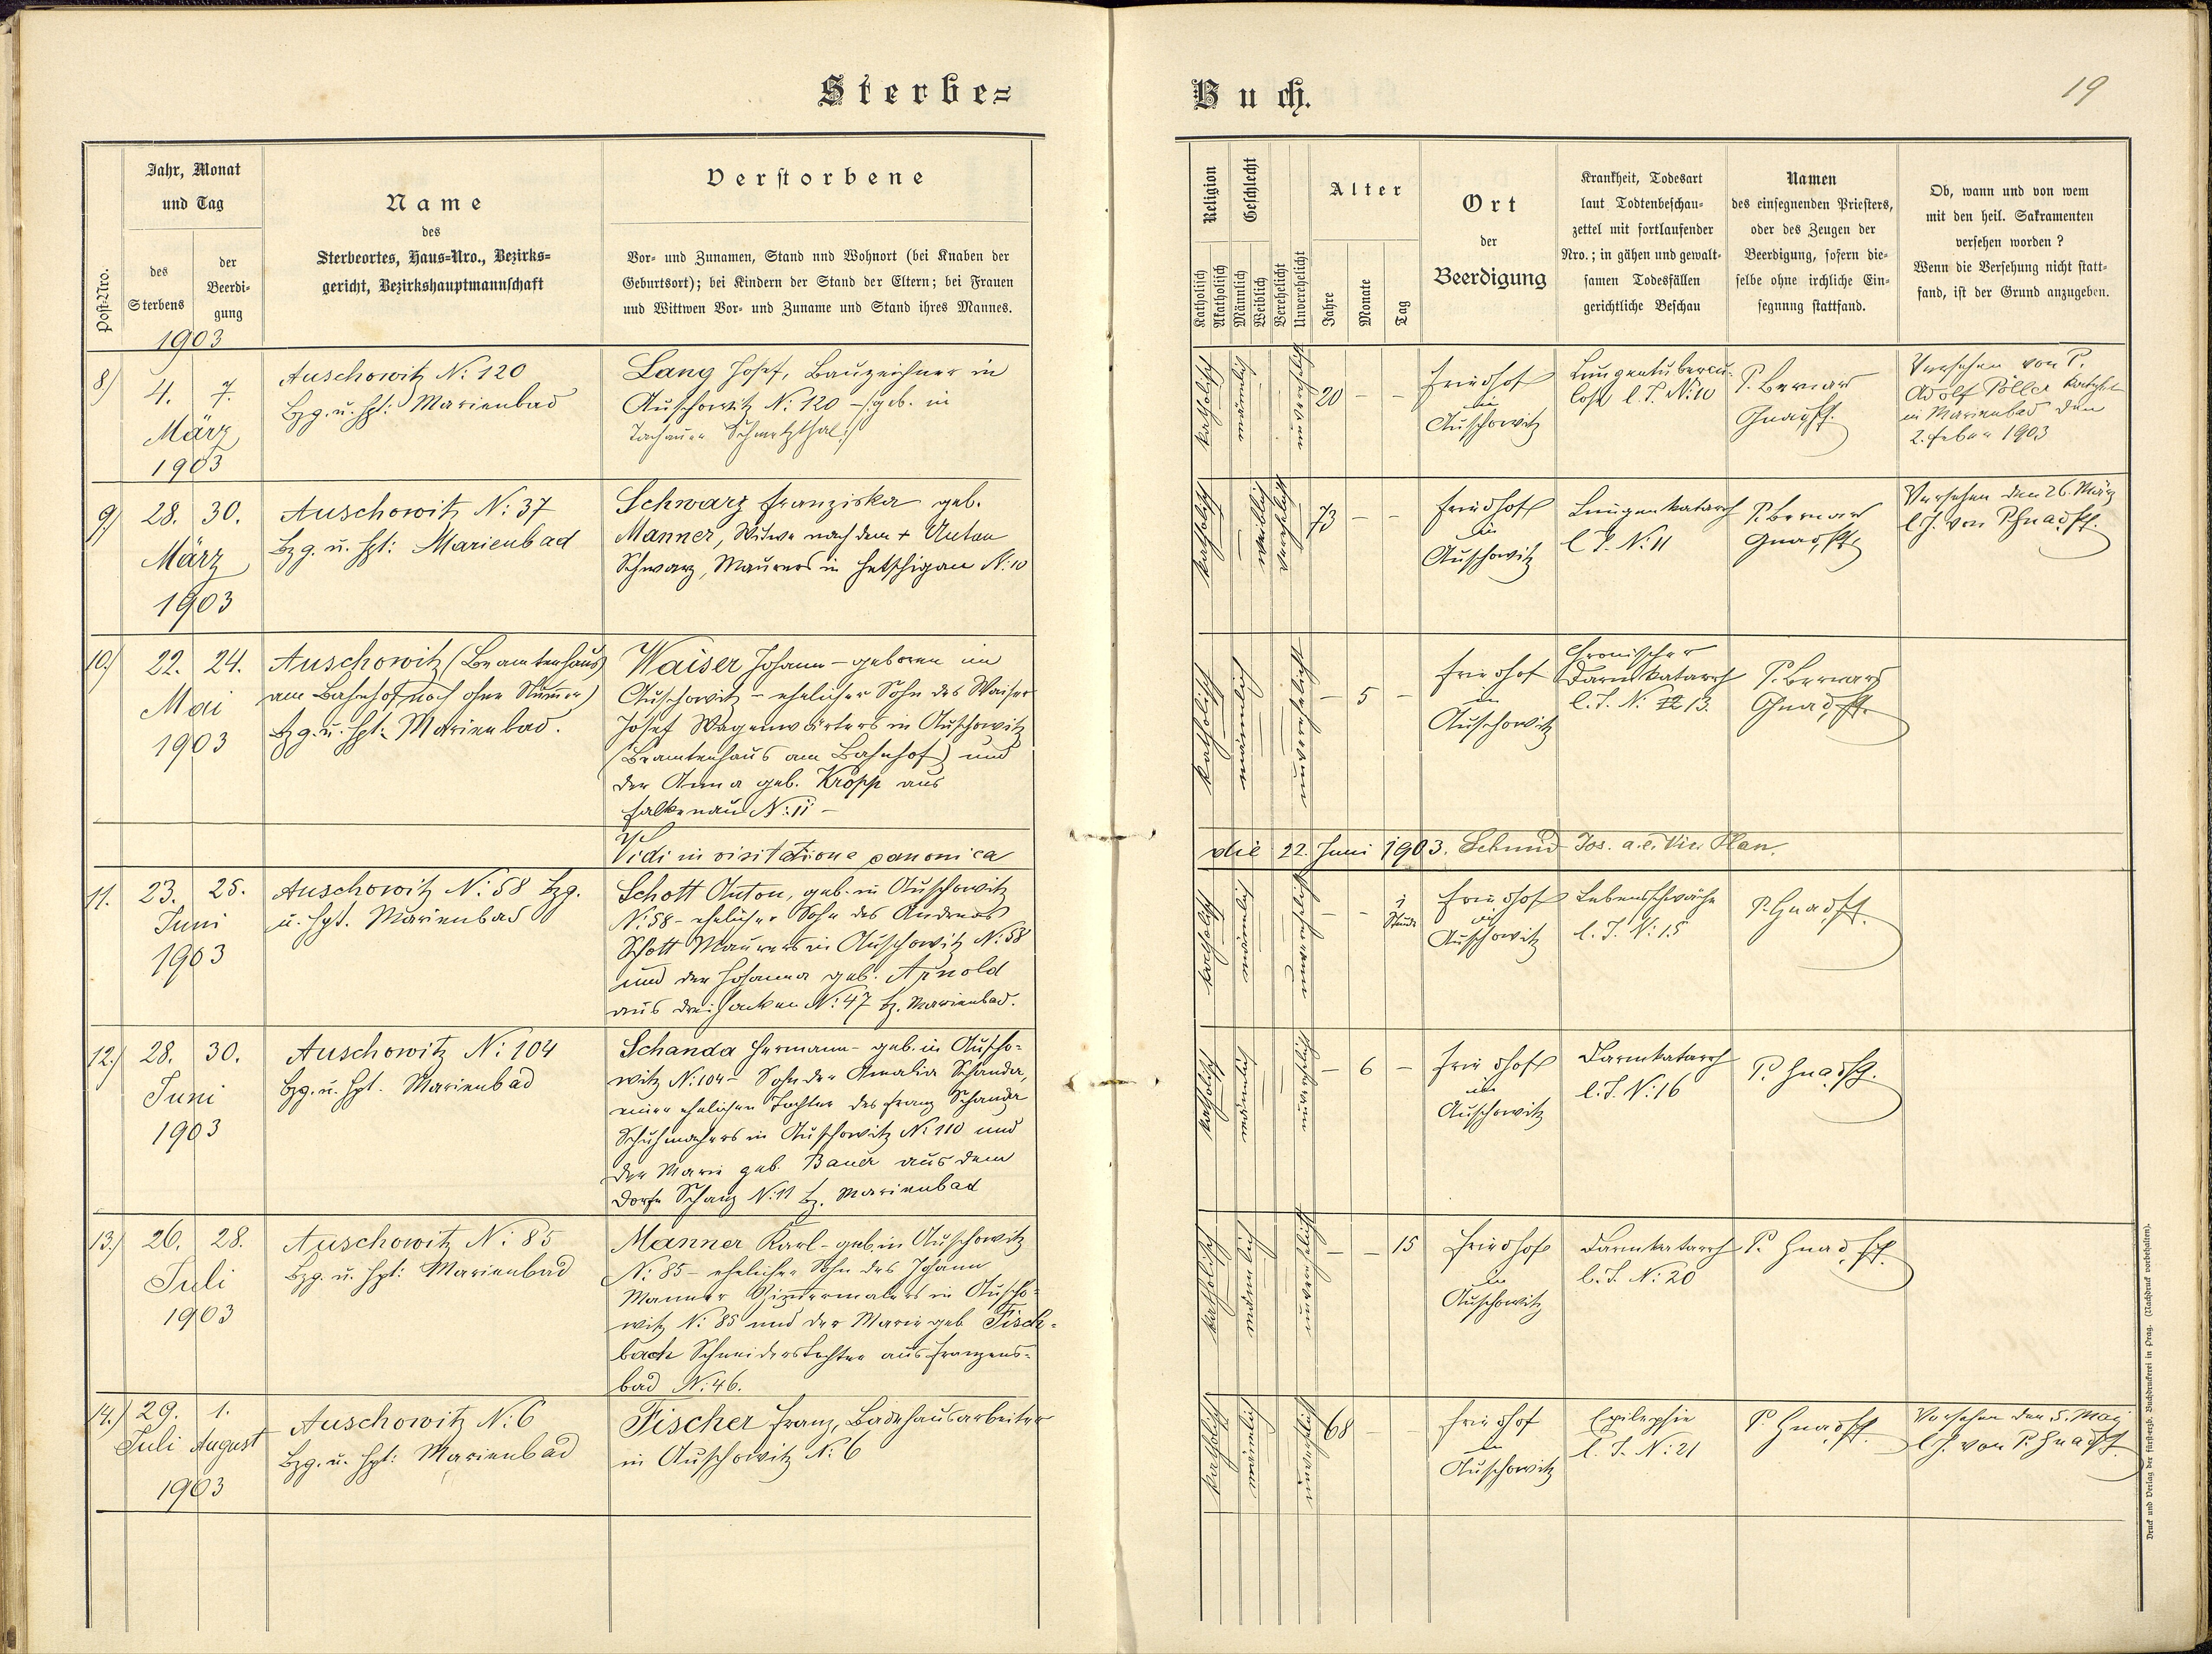 Sterbe=
Buch.
19
Post-Nro.
Jahr, Monat
und Tag
des
Sterbens
der
Beerdi-
gung
1903
Name
des
Sterbeortes, Haus=Nro., Bezirks=
gericht, Bezirkshauptmannschaft
Verstorbene
Vor- und Zunamen, Stand und Wohnort (bei Knaben der
Geburtsort); bei Kindern der Stand der Eltern; bei Frauen
und Wittwen Vor- und Zuname und Stand ihres Mannes.
Religion
Katholisch
Akatholisch
Geschlecht
Männlich
Weiblich
Verehelicht
Unverehelicht
Alter
Jahre
Monate
Tag
Ort
der
Beerdigung
Krankheit, Todesart
laut Todtenbeschau-
zettel mit fortlaufender
Nro.; in gähen und gewalt-
samen Todesfällen
gerichtliche Beschau
Namen
des einsegnenden Priesters,
oder des Zeugen der
Beerdigung, sofern die-
selbe ohne irchliche Ein-
segnung stattfand.
Ob, wann und von wem
mit den heil. Sakramenten
versehen worden?
Wenn die Versehung nicht statt-
fand, ist der Grund anzugeben.
8)
4. 7.
März
1903
Auschowitz N: 120
Bzg. u. Hpt: Marienbad
Lang Josef, Bauzeichner in
Auschowitz N: 120 - /: geb. in
Tachauer Schmelzthal :/
katholisch
männlich
unverehelicht
20 - -
Friedhof
in
Auschowitz
Lungentubercu-
lose l. J. N: 10
P. Bernard
Gnad, Pf.
Versehen von P.
Adolf Pöller
in Marienbad den
2. Feber 1903
9.)
28. 30.
März
1903
Auschowitz N: 37
Bzg. u. Hpt: Marienbad
Schwarz Franziska geb.
Manner, Witwe nach dem + Anton
Schwarz, Maurers in Hetschigau N: 10
katholisch
weiblich
verehelicht
73 - -
Friedhof
in
Auschowitz
Lungenkatarrh
l. J. N: 11
P. Bernard
Gnad, Pf.
Versehen den 26. März
l. J. von P. Gnad, Pf.
10.)
22. 24.
Mai
1903
Auschowitz (Beamtenhaus
am Bahnhof noch ohne Nummer)
Bzg. u. Hpt: Marienbad.
Waiser Johann - geboren in
Auschowitz - ehelicher Sohn des Waiser
Josef Wagenwärters in Auschowitz
(Beamtenhaus am Bahnhof) und
der Anna geb. Kropp aus
Falkenau N: 11 -
katholisch
männlich
unverehelicht
- 5 -
Friedhof
in
Auschowitz
Chronischer
Darmkatarrh
l. J. N: 12 13.
P. Bernard
Gnad, Pf.
Vidi in visitatione canonica
die 22. Juni 1903. Schmid Jos. a. e. Vic. Plan.
11.
23. 25.
Juni
1903
Auschowitz N: 58 Bzg.
u. Hpt. Marienbad
Schott Anton, geb. in Auschowitz
N: 58 - ehelicher Sohn des Andreas
Schott Maurers in Auschowitz N: 58
und der Johanna geb. Arnold
aus Dreihacken N: 47 Bz. Marienbad.
katholisch
männlich
unverehelicht
- - 1
Stunde
Friedhof
in
Auschowitz
Lebensschwäche
l. J. N: 15
P. Gnad, Pf.
12.)
28. 30.
Juni
1903
Auschowitz N: 104
Bzg. u. Hpt. Marienbad
Schanda Hermann - geb. in Auscho-
witz N: 104 - Sohn der Amalia Schanda,
einer ehelichen Tochter des Franz Schanda
Schuhmachers in Auschowitz N: 110 und
der Marie geb. Bauer aus dem
Dorfe Schanz N: 11 Bz. Marienbad
katholisch
männlich
unverehelicht
- 6 -
Friedhof
in
Auschowitz
Darmkatarrh
l. J. N: 16
P. Gnad, Pf.
13.)
26. 28.
Juli
1903
Auschowitz N: 85
Bzg. u. Hpt: Marienbad
Manner Karl - geb. in Auschowitz
N: 85 - ehelicher Sohn des Johann
Manner Zimmermalers in Auscho-
witz N: 85 und der Marie geb. Fisch-
bach Schneiderstochter aus Franzens-
bad N: 46.
katholisch
männlich
unverehelicht
- - 15
Friedhof
in
Auschowitz
Darmkatarrh
l. J. N: 20
P. Gnad, Pf.
14.)
29. 1.
Juli August
1903
Auschowitz N: 6
Bzg. u. Hpt: Marienbad
Fischer Franz, Badehausarbeiter
in Auschowitz N: 6
katholisch
männlich
unverehelicht
68 - -
Friedhof
in
Auschowitz
Epilepsie
l. J. N: 21
P. Gnad, Pf.
Versehen den 5. Mai
l. J. von P. Gnad, Pf.
Druck und Verlag der fürsterzb. Buchdruckerei in Prag. (Nachdruck vorbehalten).